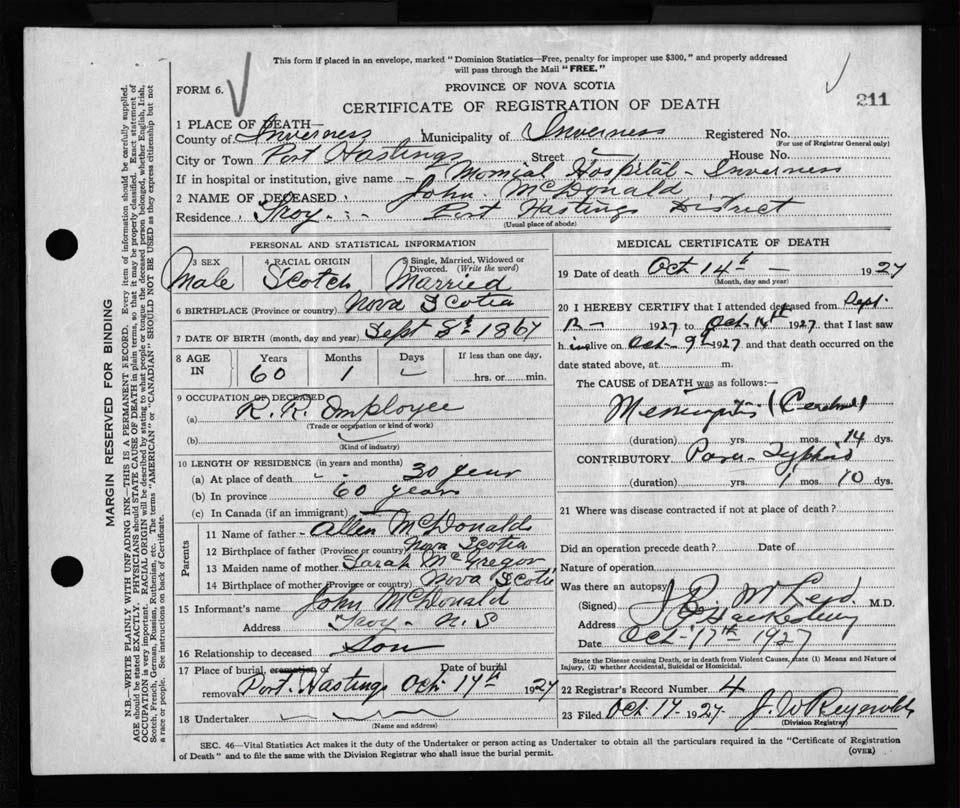 This form if placed in an envelope, marked "Dominion Statistics—Free, penalty for improper use $300," and properly addressed
will pass through the Mail "FREE."
FORM 6.
PROVINCE OF NOVA SCOTIA
CERTIFICATE OF REGISTRATION OF DEATH
211
1 PLACE OF DEATH—
County of Inverness Municipality of Inverness Registered No.
(For use of Registrar General only)
City or Town Port Hastings Street House No.
If in hospital or institution, give name Hospital - Inverness
2 NAME OF DECEASED John McDonald
Residence Troy Port Hastings District
(Usual place of abode)
PERSONAL AND STATISTICAL INFORMATION
3 SEX 4 RACIAL ORIGIN 5 Single, Married, Widowed or
Divorced. (Write the word)
Male Scotch Married
6 BIRTHPLACE (Province or country) Nova Scotia
7 DATE OF BIRTH (month, day and year) Sept 8th 1867
8 AGE Years Months Days If less than one day,
IN 60 1 hrs. or min.
9 OCCUPATION OF DECEASED
(a) R. R. Employee
(Trade or occupation or kind of work)
(b)
(Kind of industry)
10 LENGTH OF RESIDENCE (in years and months)
(a) At place of death 30 year
(b) In province 60 years
(c) In Canada (if an immigrant)
Parents
11 Name of father Allen McDonald
12 Birthplace of father (Province or country) Nova Scotia
13 Maiden name of mother Sarah McGregor
14 Birthplace of mother (Province or country) Nova Scotia
15 Informant's name John McDonald
Address Troy - N. S
16 Relationship to deceased Son
17 Place of burial, cremation or Date of burial
removal Port Hastings Oct 17th 1927
18 Undertaker
(Name and address)
MEDICAL CERTIFICATE OF DEATH
19 Date of death Oct 14th - 1927
(Month, day and year)
20 I HEREBY CERTIFY that I attended deceased from Sept.
1927 to Oct. 14th 1927, that I last saw
h im alive on Oct - 9th 1927 and that death occurred on the
date stated above, at m.
The CAUSE of DEATH was as follows:—
Meningitis
(duration) yrs. mos. 14 dys.
CONTRIBUTORY Para-Typhoid
(duration) yrs. 1 mos. 10 dys.
21 Where was disease contracted if not at place of death?
Did an operation precede death? Date of
Nature of operation
Was there an autopsy
(Signed) McLeod M.D.
Address Hawkesbury
Date Oct - 17th 1927
State the Disease causing Death, or in death from Violent Causes, state (1) Means and Nature of
Injury, (2) whether Accidental, Suicidal or Homicidal.
22 Registrar's Record Number 4
23 Filed Oct 17 - 1927. J. W Reynolds
(Division Registrar)
SEC. 46—Vital Statistics Act makes it the duty of the Undertaker or person acting as Undertaker to obtain all the particulars required in the "Certificate of Registration
of Death" and to file the same with the Division Registrar who shall issue the burial permit.
(OVER)
MARGIN RESERVED FOR BINDING
N.B.—WRITE PLAINLY WITH UNFADING INK—THIS IS A PERMANENT RECORD. Every item of information should be carefully supplied.
AGE should be stated EXACTLY. PHYSICIANS should STATE CAUSE OF DEATH in plain terms, so that it may be properly classified. Exact statement of
OCCUPATION is very important. RACIAL ORIGIN will be described by stating to what people or tongue the deceased person belonged, whether English, Irish,
Scotch, French, German, Russian, Ruthenian, etc. The terms "AMERICAN" or "CANADIAN" SHOULD NOT BE USED as they express citizenship but not
a race or people. See instructions on back of Certificate.